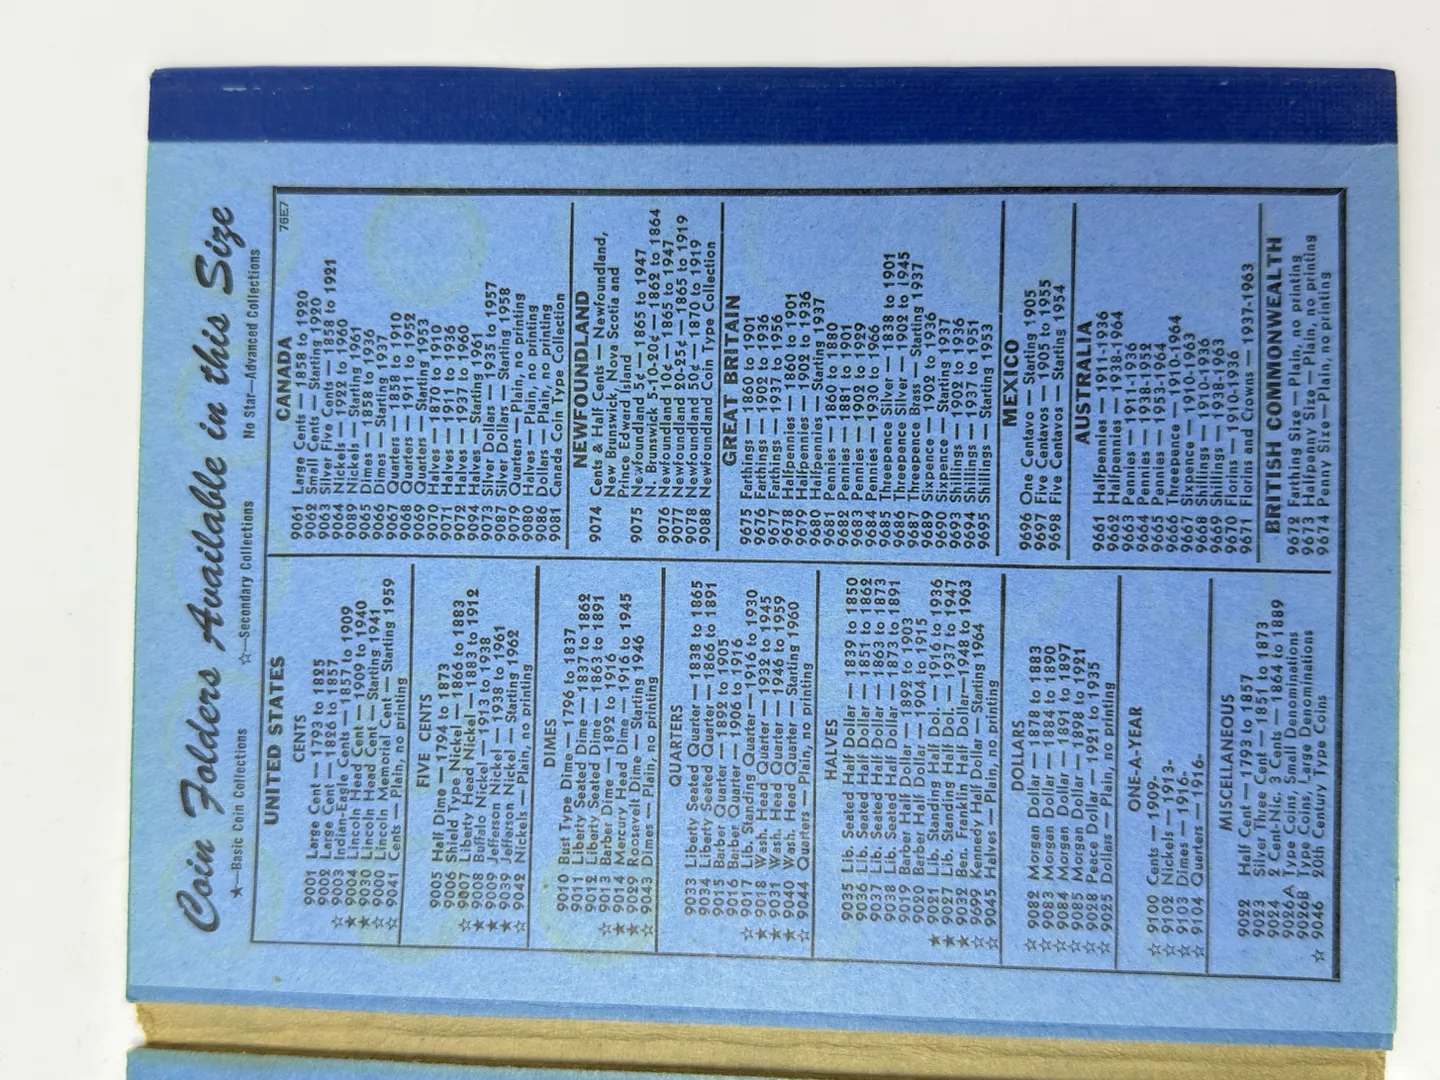 Coin Folders Available in this Size
★—Basic Coin Collections ☆—Secondary Collections No Star—Advanced Collections
UNITED STATES
CENTS
9001 Large Cent — 1793 to 1825
9002 Large Cent — 1826 to 1857
☆ 9003 Indian-Eagle Cents — 1857 to 1909
★ 9004 Lincoln Head Cent — 1909 to 1940
★ 9030 Lincoln Head Cent — Starting 1941
☆ 9000 Lincoln Memorial Cent — Starting 1959
☆ 9041 Cents — Plain, no printing
FIVE CENTS
9005 Half Dime — 1794 to 1873
9006 Shield Type Nickel — 1866 to 1883
☆ 9007 Liberty Head Nickel — 1883 to 1912
★ 9008 Buffalo Nickel — 1913 to 1938
★ 9009 Jefferson Nickel — 1938 to 1961
★ 9039 Jefferson Nickel — Stating 1962
☆ 9042 Nickels — Plain, no printing
DIMES
9010 Bust Type Dime — 1796 to 1837
9011 Liberty Seated Dime — 1837 to 1862
9012 Liberty Seated Dime — 1863 to 1891
☆ 9013 Barber Dime — 1892 to 1916
★ 9014 Mercury Head Dime — 1916 to 1945
★ 9029 Roosevelt Dime — Starting 1946
☆ 9043 Dimes — Plain, no printing
QUARTERS
9033 Liberty Seated Quarter — 1838 to 1865
9034 Liberty Seated Quarter — 1866 to 1891
9015 Barber Quarter — 1892 to 1905
9016 Barber Quarter — 1906 to 1916
☆ 9017 Lib. Standing Quarter — 1916 to 1930
★ 9018 Wash. Head Quarter — 1932 to 1945
★ 9031 Wash. Head Quarter — 1946 to 1959
★ 9040 Wash. Head Quarter — Starting 1960
☆ 9044 Quarters — Plain, no printing
HALVES
9035 Lib. Seated Half Dollar — 1839 to 1850
9036 Lib. Seated Half Dollar — 1851 to 1862
9037 Lib. Seated Half Dollar — 1863 to 1873
9038 Lib. Seated Half Dollar — 1873 to 1891
9019 Barber Half Dollar — 1892 to 1903
9020 Barber Half Dollar — 1904 to 1915
★ 9021 Lib. Standing Half Dol. — 1916 to 1936
★ 9027 Lib. Standing Half Dol. — 1937 to 1947
★ 9032 Ben. Franklin Half Dollar — 1948 to 1963
☆ 9699 Kennedy Half Dollar — Starting 1964
☆ 9045 Halves — Plain, no printing
DOLLARS
☆ 9082 Morgan Dollar — 1878 to 1883
☆ 9083 Morgan Dollar — 1884 to 1890
☆ 9084 Morgan Dollar — 1891 to 1897
☆ 9085 Morgan Dollar — 1898 to 1921
☆ 9028 Peace Dollar — 1921 to 1935
☆ 9025 Dollars — Plain, no printing
ONE-A-YEAR
☆ 9100 Cents — 1909-
☆ 9102 Nickels — 1913-
☆ 9103 Dimes — 1916-
☆ 9104 Quarters — 1916-
MISCELLANEOUS
9022 Half Cent — 1793 to 1857
9023 Silver Three Cent — 1851 to 1873
9024 2 Cent-Nic. 3 Cents — 1864 to 1889
9026A Type Coins, Small Denominations
9026B Type Coins, Large Denominations
☆ 9046 20th Century Type Coins
76E7
CANADA
9061 Large Cents — 1858 to 1920
9062 Small Cents — Starting 1920
9063 Silver Five Cents — 1858 to 1921
9064 Nickels — 1922 to 1960
9089 Nickels — Starting 1961
9065 Dimes — 1858 to 1936
9066 Dimes — Starting 1937
9067 Quarters — 1858 to 1910
9068 Quarters — 1911 to 1952
9069 Quarters — Starting 1953
9070 Halves — 1870 to 1910
9071 Halves — 1911 to 1936
9072 Halves — 1937 to 1960
9094 Halves — Starting 1961
9073 Silver Dollars — 1935 to 1957
9087 Silver Dollars — Starting 1958
9079 Quarters — Plain, no printing
9080 Halves — Plain, no printing
9086 Dollars — Plain, no printing
9081 Canada Coin Type Collection
NEWFOUNDLAND
9074 Cents & Half Cents — Newfoundland,
New Brunswick, Nova Scotia and
Prince Edward Island
9075 Newfoundland 5¢ — 1865 to 1947
N. Brunswick 5-10-20¢ — 1862 to 1864
9076 Newfoundland 10¢ — 1865 to 1947
9077 Newfoundland 20-25¢ — 1865 to 1919
9078 Newfoundland 50¢ — 1870 to 1919
9088 Newfoundland Coin Type Collection
GREAT BRITAIN
9675 Farthings — 1860 to 1901
9676 Farthings — 1902 to 1936
9677 Farthings — 1937 to 1956
9678 Halfpennies — 1860 to 1901
9679 Halfpennies — 1902 to 1936
9680 Halfpennies — Starting 1937
9681 Pennies — 1860 to 1880
9682 Pennies — 1881 to 1901
9683 Pennies — 1902 to 1929
9684 Pennies — 1930 to 1966
9685 Threepence Silver — 1838 to 1901
9686 Threepence Silver — 1902 to 1945
9687 Threepence Brass — Starting 1937
9689 Sixpence — 1902 to 1936
9690 Sixpence — Starting 1937
9693 Shillings — 1902 to 1936
9694 Shillings — 1937 to 1951
9695 Shillings — Starting 1953
MEXICO
9696 One Centavo — Starting 1905
9697 Five Centavos — 1905 to 1955
9698 Five Centavos — Starting 1954
AUSTRALIA
9661 Halfpennies — 1911-1936
9662 Halfpennies — 1938-1964
9663 Pennies — 1911-1936
9664 Pennies — 1938-1952
9665 Pennies — 1953-1964
9666 Threepence — 1910-1964
9667 Sixpence — 1910-1963
9668 Shillings — 1910-1936
9669 Shillings — 1938-1963
9670 Florins — 1910-1936
9671 Florins and Crowns — 1937-1963
BRITISH COMMONWEALTH
9672 Farthing Size — Plain, no printing
9673 Halfpenny Size — Plain, no printing
9674 Penny Size — Plain, no printing